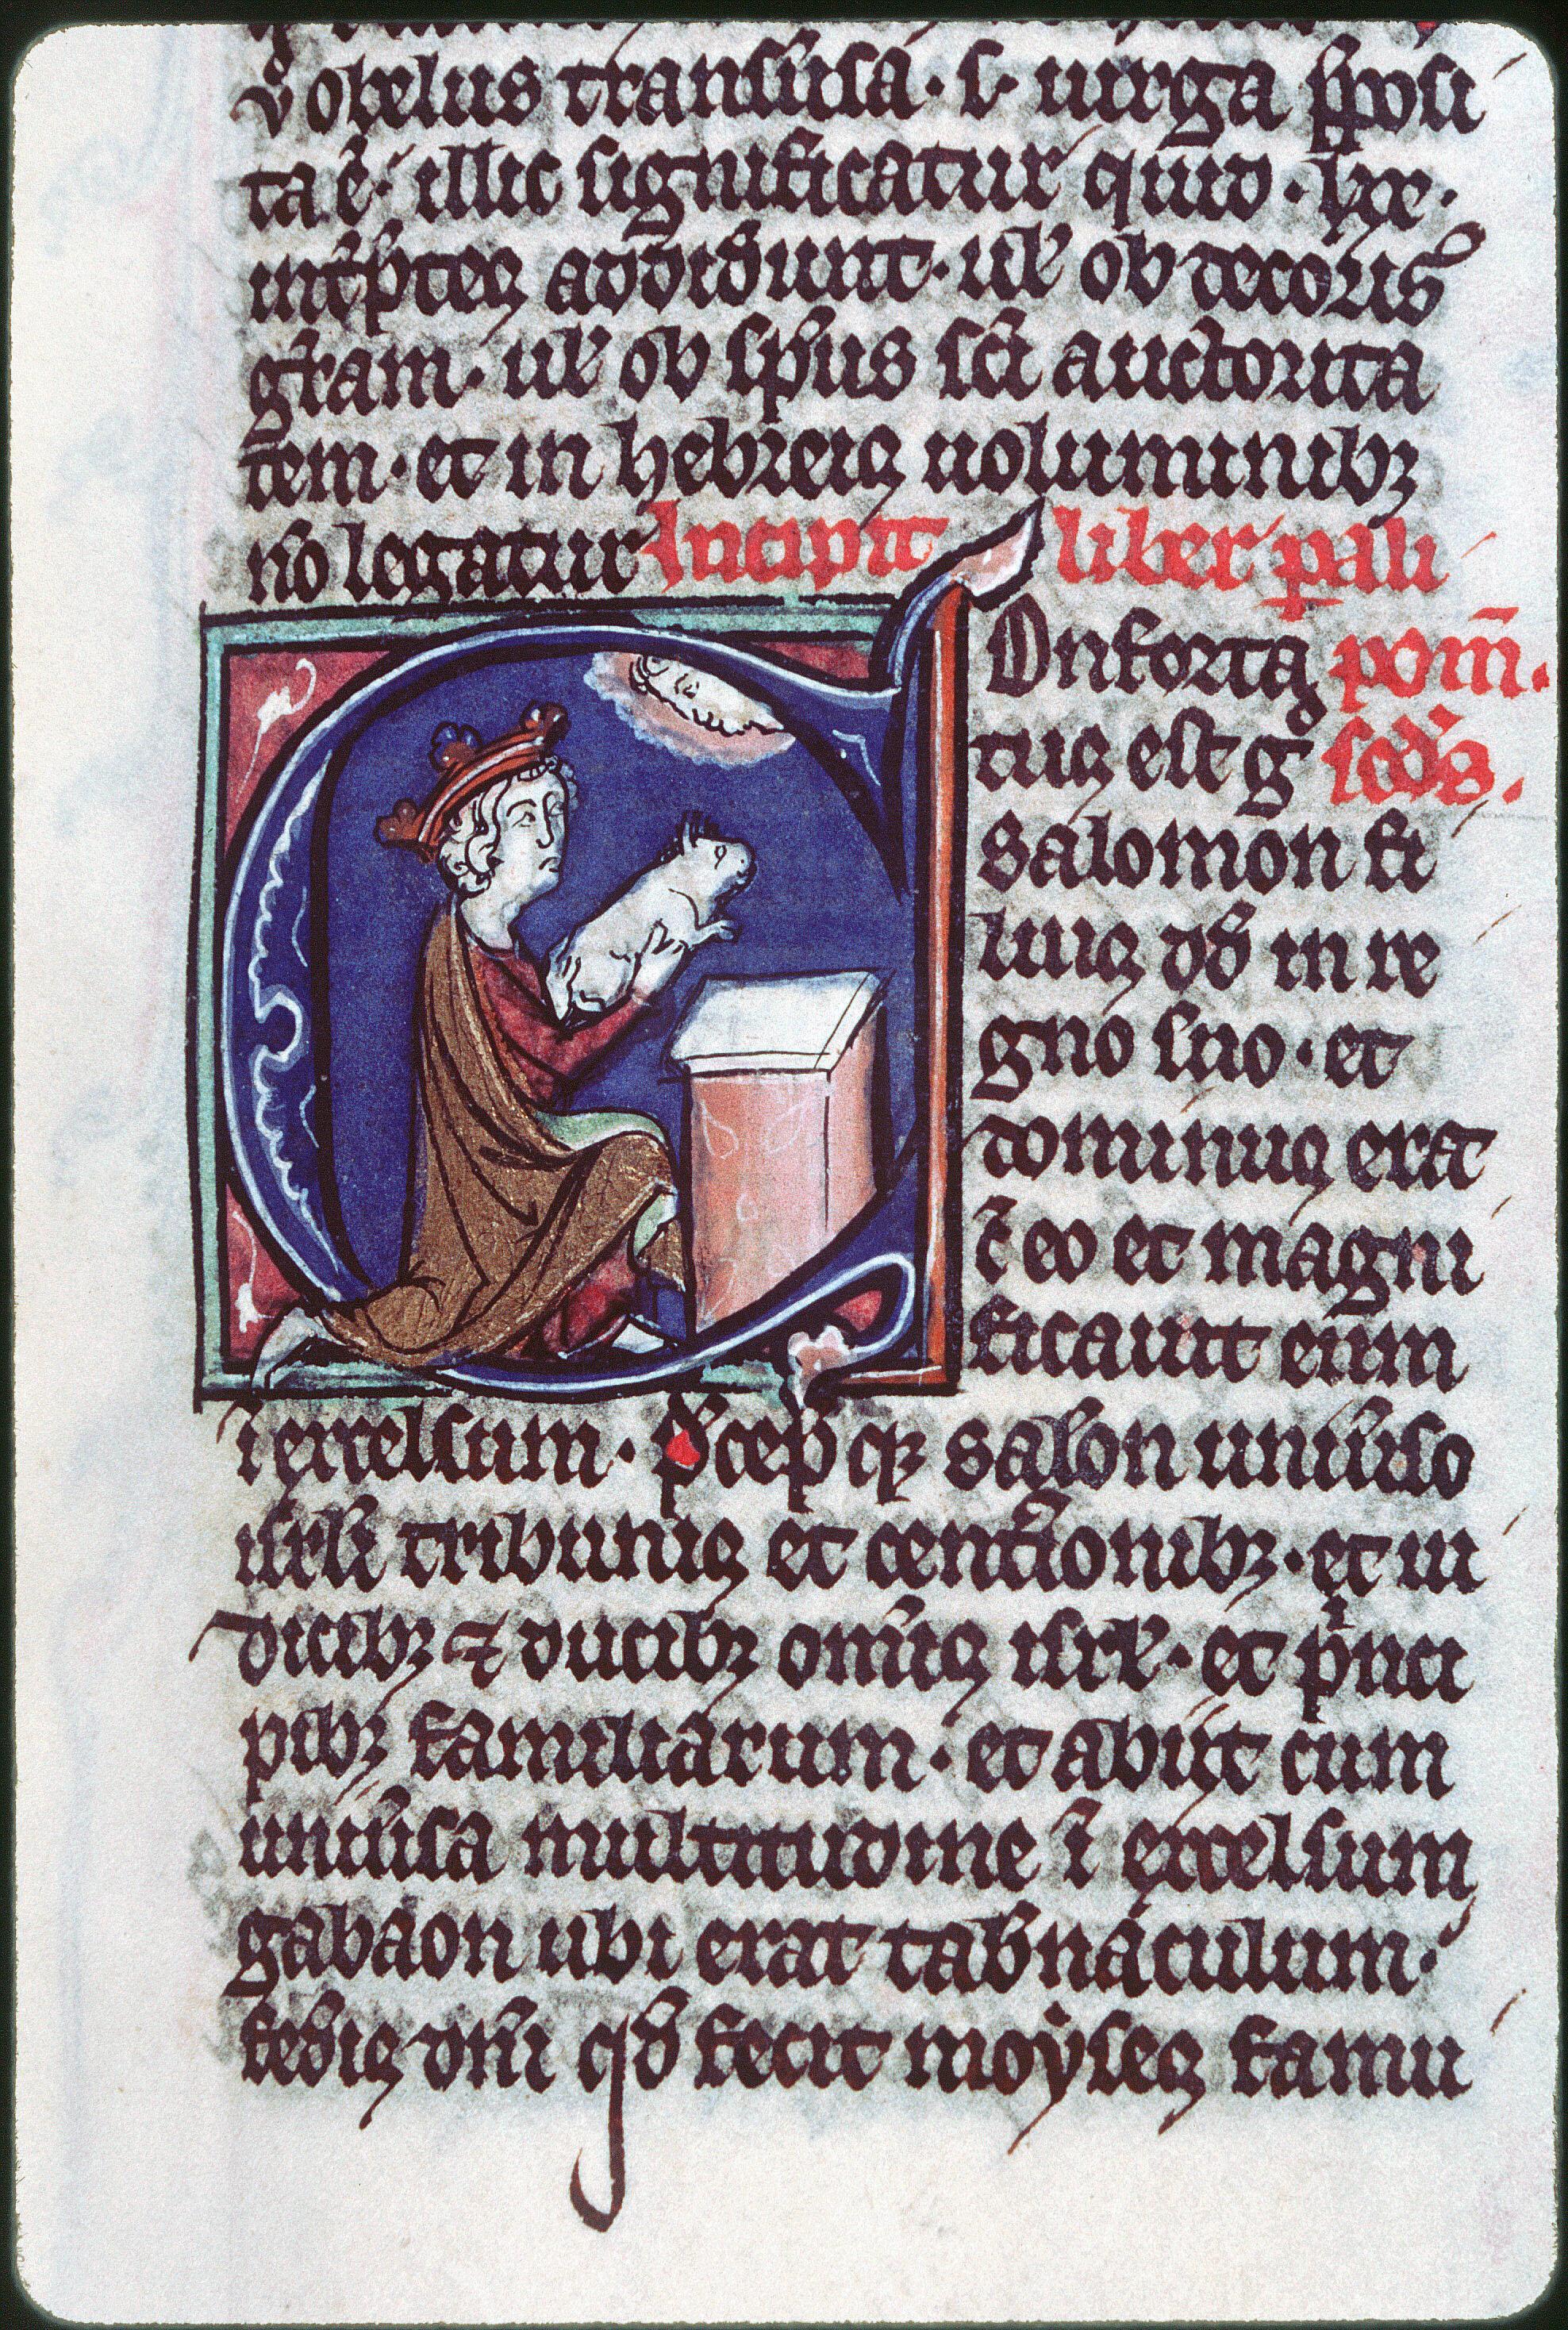 v̊ obelus transũsa · ł · uirga p̃posi
ta ẽ · illic significatur quid · lxx ·
int̃p̃tes addid̃unt · uł ob decoris
gr̃am · uł ob sp̃us sc̃i auctorita
tem · et in hebreis uoluminibꝫ
nõ legatur Incipit liber pali
Onforta pom̃ .
tus est gͦ scd̃s .
salomon fi
lius dd̃ in re
gno suo · et
dominus erat
cũ eo et magni
ficauit eum
ĩ excelsum · P̃cep̃ qꝫ salon uniũso
isrł tribunis et cent̃ionibꝫ · et iu
dicibꝫ ⁊ ducibꝫ om̃is isrł · et pͥnci
pibꝫ familiarum · et abiit cum
uniũsa multitudine ĩ excelsum
gabaon ubi erat tab̃naculum ·
fed̃is dñi qd̃ fecit moyses famu